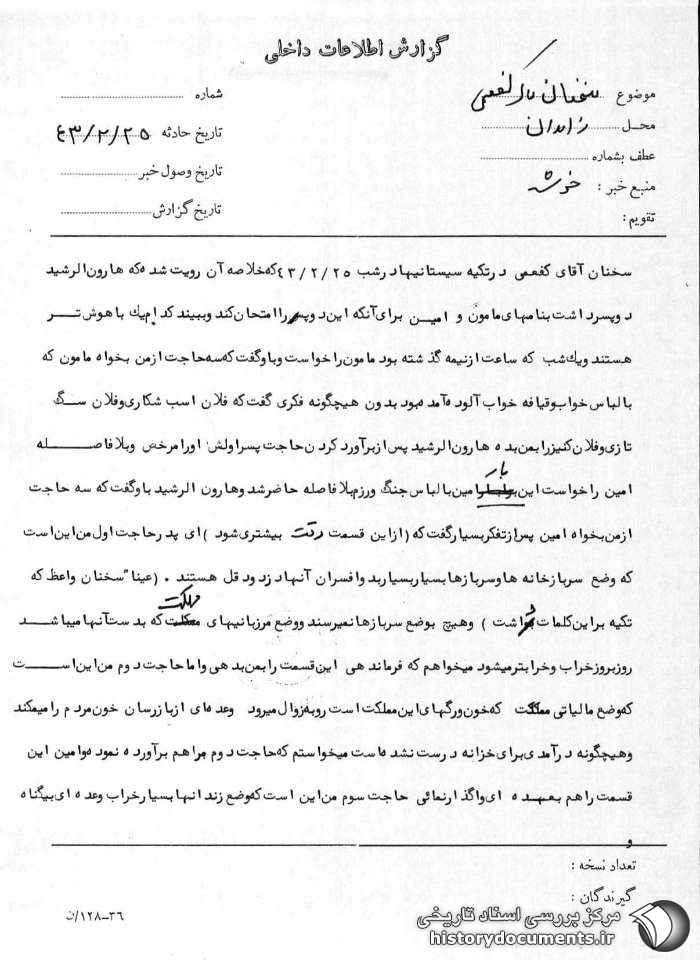 گزارش اطلاعات داخلی
موضوع سخنان کفعمی
شماره
محل زاهدان
تاریخ حادثه ۴۳/۲/۲۵
عطف بشماره
تاریخ وصول خبر
منبع خبر : خوشه
تاریخ گزارش
تقویم :
سخنان آقای کفعمی در تکیه سیستانیها در شب ۴۳/۲/۲۵ که خلاصه آن رویت شده که هارون الرشید
دو پسر داشت بنامهای مامون و امین برای آنکه این دو پسر را امتحان کند و ببیند کدام یک باهوش تر
هستند و یک شب که ساعت از نیمه گذشته بود مامون را خواست و باو گفت که سه حاجت از من بخواه مامون که
با لباس خواب و قیافه خواب آلود آمده بود بدون هیچگونه فکری گفت که فلان اسب شکاری و فلان سگ
تازی و فلان کنیز را بمن بده هارون الرشید پس از برآورد کردن حاجت پسر اولش او را مرخص و بلافاصله
امین را خواست این بار امین با لباس جنگ و رزم بلافاصله حاضر شد و هارون الرشید باو گفت که سه حاجت
از من بخواه امین پس از تفکر بسیار گفت که (از این قسمت دقت بیشتری شود) ای پدر حاجت اول من این است
که وضع سربازخانه ها و سربازها بسیار بسیار بد و افسران آنها دزد و دقل هستند . (عینا" سخنان واعظ که
تکیه بر این کلمات داشت ) و هیچ بوضع سربازها نمیرسند و وضع مرزبانیهای مملکت که بدست آنها میباشد
روز بروز خراب و خرابتر میشود میخواهم که فرماندهی این قسمت را بمن بدهی و اما حاجت دوم من این است
که وضع مالیاتی مملکت که خون و رگهای این مملکت است رو به زوال میرود و عده ای از بازرسان خون مردم را میمکند
و هیچگونه درآمدی برای خزانه درست نشده است میخواستم که حاجت دوم مرا هم برآورده نموده و امین این
قسمت را هم بعهده ای واگذار نمائی حاجت سوم من این است که وضع زندانها بسیار خراب و عده ای بیگناه
و
تعداد نسخه :
گیرندگان :
۳۶-۱۲۸/ن
مرکز بررسی اسناد تاریخی
historydocuments.ir